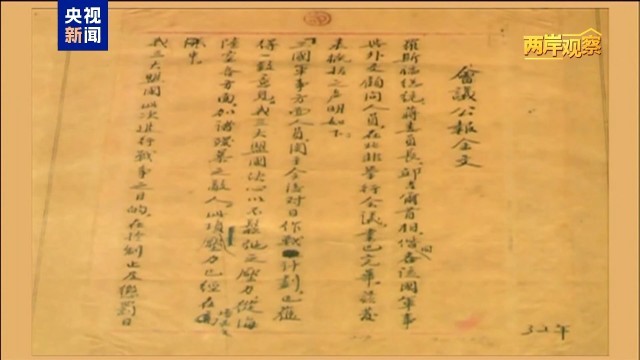 央视新闻
两岸观察
會議公報全文
羅斯福總統、蔣委員長、邱吉爾首相、偕同各該國軍事
與外交顧問人員、在北非舉行會議、業已完畢、茲發
表概括之聲明如下:
「三國軍事方面人員、關于今後對日作戰計劃、已獲
得一致意見、我三大盟國決心以不鬆弛之壓力從海
陸空各方面、加諸殘暴之敵人、此項壓力已經在
中。
我三大盟國此次進行戰爭之目的、在於制止及懲罰日
32年